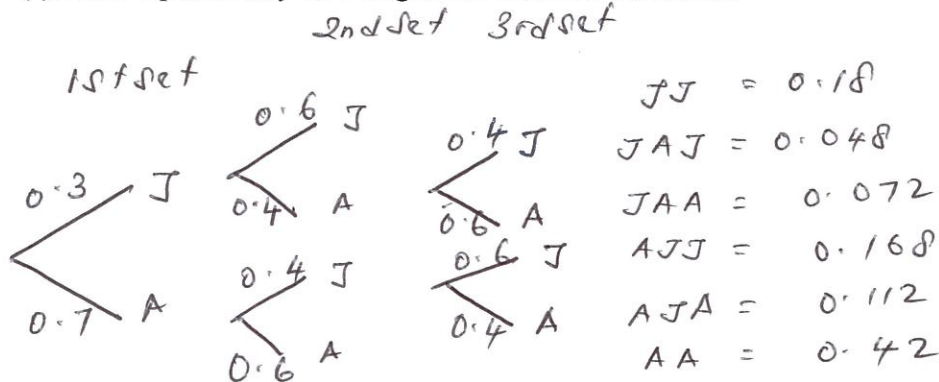 2nd set 3rd set
1st set
0.6 J
0.4 J
0.3 J
0.4 A
0.6 A
0.4 J
0.6 J
0.7 A
0.6 A
0.4 A
JJ = 0.18
JAJ = 0.048
JAA = 0.072
AJJ = 0.168
AJA = 0.112
AA = 0.42